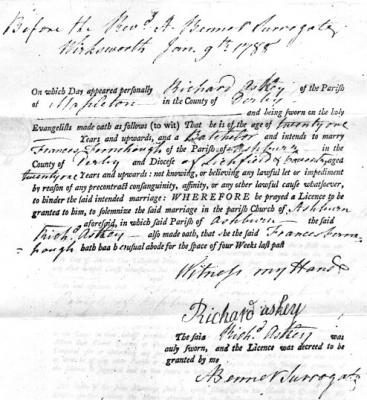 Before the Revd. A. Bennet Surrogate
Wirksworth Jan. 9th. 1788
On which Day appeared personally Richard Askey of the Parish
of Mapleton in the County of Derby and being sworn on the holy
Evangelists made oath as follows (to wit) That he is of the age of twenty one
Years and upwards, and a Batchelor and intends to marry
Frances of the Parish of Ashburn in the
County of Derby and Diocese of Lichfield & aged
twenty one Years and upwards: not knowing, or believing any lawful let or impediment
by reason of any precontract consanguinity, affinity, or any other lawful cause whatsoever,
to hinder the said intended marriage: WHEREFORE he prayed a Licence to be
granted to him, to solemnize the said marriage in the parish Church of Ashburn
aforesaid, in which said Parish of Ashburn the said
Richd. Askey also made oath, that she the said Frances
hough hath had her usual abode for the space of four Weeks last past
Witness my Hand
Richard askey
The said Richd. Askey was
duly sworn, and the Licence was decreed to be
granted by me
A Bennet Surrogate